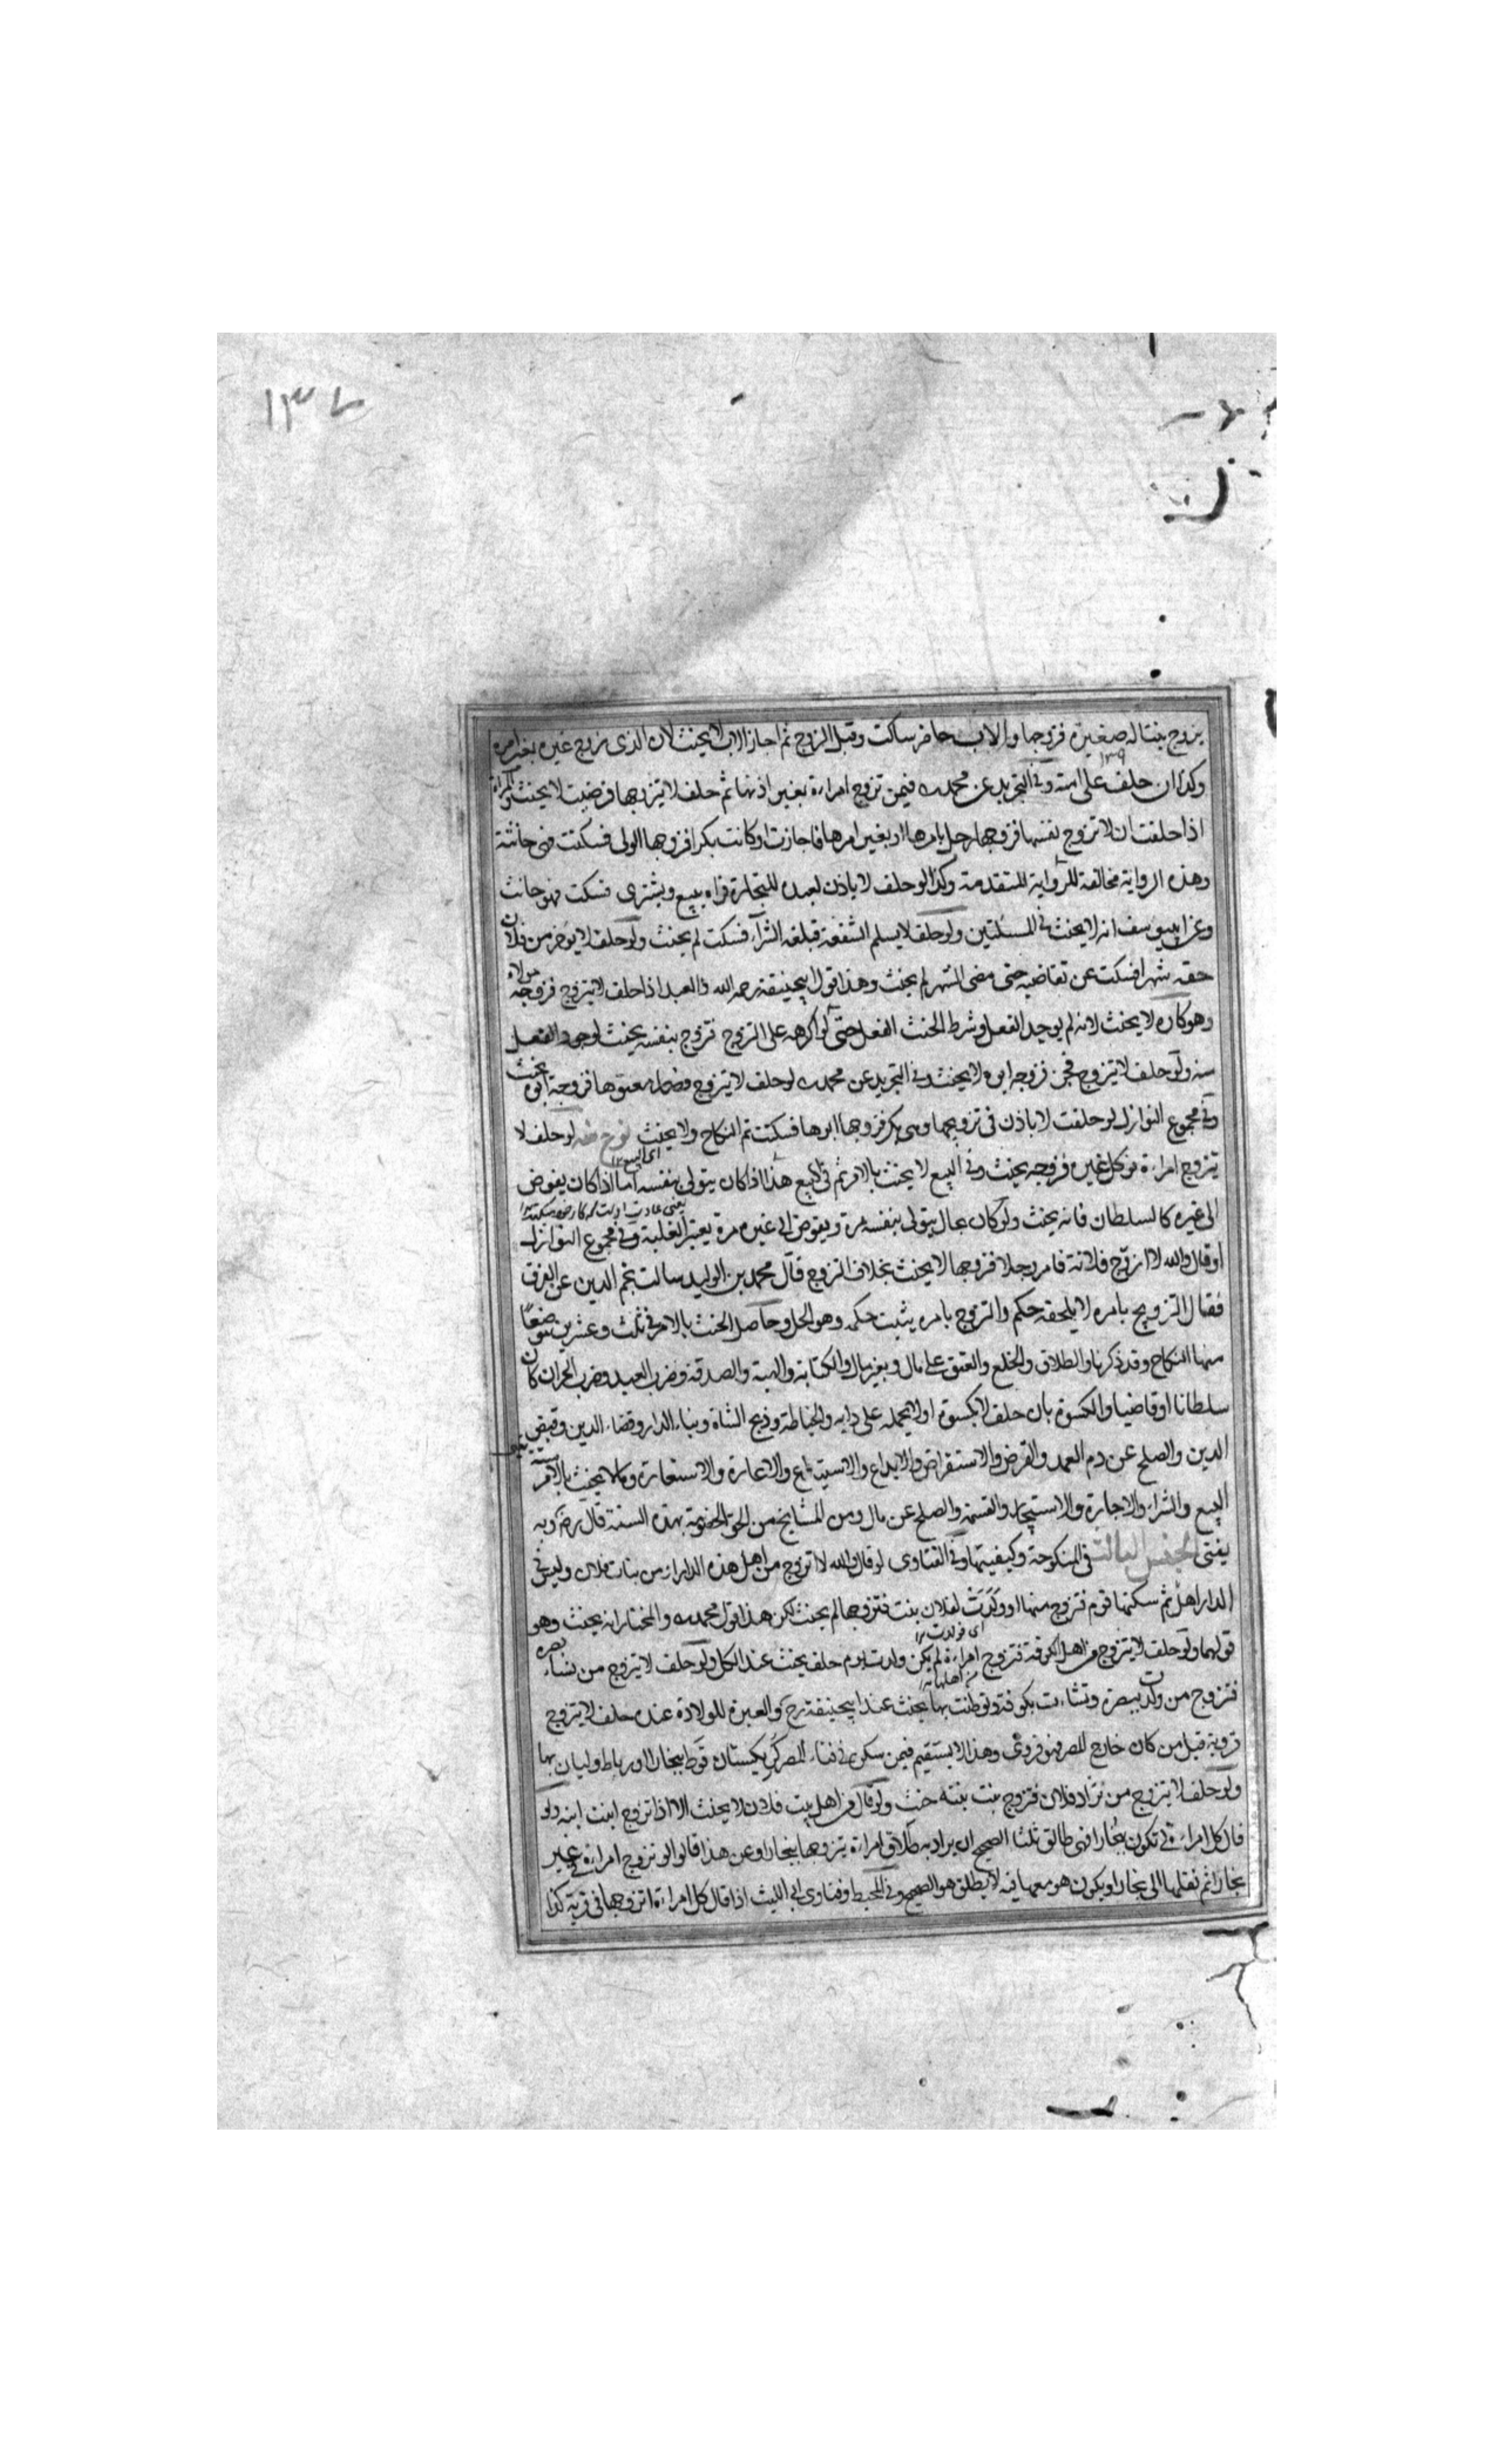 ١٣٧
يزوج بنتا له صغيرة فزوجها والاب حاضر ساكت وقبل الزوج ثم اجاز الاب لا يحنث لان الذي زوج غيره بغير امره
١٣٩
وكذا ان حلف على امته وفي التجريد عن محمد فيمن تزوج امراءة بغير اذنها ثم حلف لا يتزوجها فرضيت لا يحنث المراة
اذا حلفت ان لا تزوج نفسها فزوجها رجل بامرها او بغير امرها فاجازت او كانت بكرا فزوجها الولى فسكتت فهى حانثة
وهذه الرواية مخالفة للرواية المتقدمة وكذا لو حلف لا ياذن لعبده للتجارة فراه يبيع ويشترى فسكت فهو حانث
وعن ابييوسف انه لا يحنث في المسئلتين ولو حلف لا يسلم الشفعة فبلغه الشرآء فسكت لم يحنث ولو حلف لا يؤخر من فلان
حقه شهرا فسكت عن تقاضيه حتى مضى الشهر لم يحنث وهذا قول ابيحنيفة رحمه الله والعبد اذا حلف لا يتزوج فزوجه مولاه
وهو كاره لا يحنث لانه لم يوجد الفعل وشرط الحنث الفعل حتى لو اكرهه على التزوج فتزوج بنفسه يحنث لوجود الفعل
منه ولو حلف لا يتزوج فجن فزوجه ابوه لا يحنث وفي التجريد عن محمد لو حلف لا يتزوج فصار معتوها فزوجه ابوه يحنث
وفي مجموع النوازل لو حلفت لا ياذن في تزويجها وهى بكر فزوجها ابوها فسكتت تم النكاح ولا يحنث نوع منه لو حلف لا
اى البيع ١٢
يتزوج امراءة فوكل غيره فزوجه يحنث وفي البيع لا يحنث بالامر ثم في البيع هذا اذا كان يتولى بنفسه اما اذا كان يفوض
الى غيره كالسلطان فانه يحنث ولو كان بحال يتولى بنفسه مرة ويفوض الى غيره مرة يعتبر الغلبة وفي مجموع النوازل
او قال والله لا ازوج فلانة فامر رجلا فزوجها لا يحنث بخلاف التزوج قال محمد بن الوليد سالت نجم الدين عن الفرق
فقال التزويج بامره لا يلحقه حكم والتزوج بامره يثبت حكمه وهو الحل وحاصل الحنث بالامر في ثلث وعشرين موضعا
منها النكاح وقد ذكرنا والطلاق والخلع والعتق على مال وبغير مال والكتابة والهبة والصدقة وضرب العبد وضرب الحر ان كان
سلطانا او قاضيا والكسوة بان حلف لا يكسوه او لا يحمله على دابه والخياطة وذبح الشاة وبناء الدار وقضاء الدين وقبض
الدين والصلح عن دم العمد والقرض والاستقراض والايداع والاستيداع والاعارة والاستعارة وما لا يحنث بالامر ستة
البيع والشراء والاجارة والاستيجار والقسمة والصلح عن مال ومن المشايخ من الحق الخصومة بهذه الستة قال رض وبه
يفتى الجنس الثالث في المنكوحة وكيفيتها وفي الفتاوى لو قال والله لا اتزوج من اهل هذه الدار او من بنات فلان وليس في
الدار اهل ثم سكنها قوم فتزوج منها او ولدت لفلان بنت فتزوجها لم يحنث لكن هذا قول محمد والمختار انه يحنث وهو
اى فولدت ١٢
قولهما ولو حلف لا يتزوج من اهل الكوفة فتزوج امراءة لم يكن ولدت يوم حلف يحنث عند الكل ولو حلف لا يتزوج من نساء بصره
فتزوج من ولدت ببصرة ونشاءت بكوفة وتوطنت بها يحنث عند ابيحنيفة رح والعبرة للولادة عنده حلف لا يتزوج
قروية قيل من كان خارج المصر فهو قروى وهذا لا يستقيم فيمن سكن في فناء المصر
ولو حلف لا يتزوج من نزاد فلان فتزوج بنت بنته حنث ولو قال من اهل بيت فلان لا يحنث الا اذا تزوج ابنت ابنه ولو
قال كل امراءة لي تكون ببخارا فهى طالق ثلثا الصحيح ان يراد به طلاق امراءة يتزوجها ببخارا وعن هذا قالوا لو تزوج امراءة في غير
بخارا ثم نقلها الى بخارا ويكون هو معها فيه لا يطلق هو الصحيح وفي المحيط وفتاوى ابى الليث اذا قال كل امراءة اتزوجها في قرية كذا